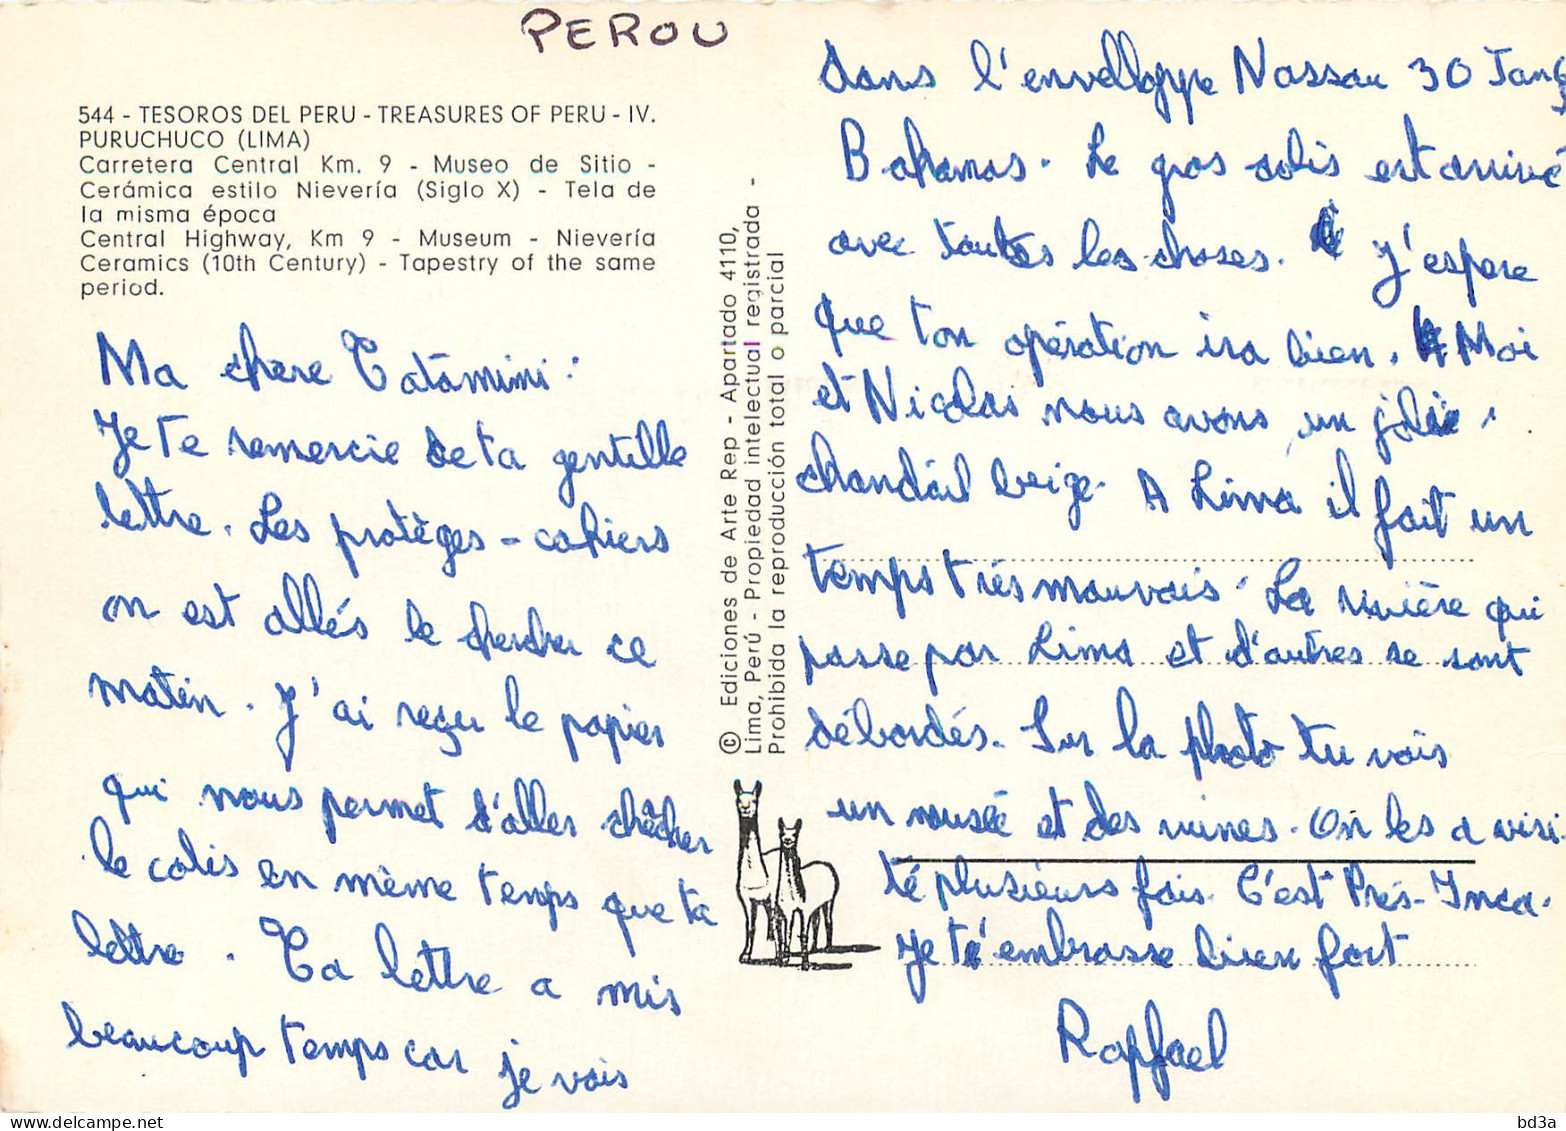 PEROU
544 - TESOROS DEL PERU - TREASURES OF PERU - IV.
PURUCHUCO (LIMA)
Carretera Central Km. 9 - Museo de Sitio -
Cerámica estilo Nievería (Siglo X) - Tela de
la misma época
Central Highway, Km 9 - Museum - Nievería
Ceramics (10th Century) - Tapestry of the same
period.
Ma chere Tatamini :
Je te remercie de ta gentille
lettre. Les protèges-cahiers
on est allés le chercher ce
maten. J'ai reçu le papier
qui nous permet d'aller chêcher
le colis en même temps que ta
lettre. Ta lettre a mis
beaucoup temps car je vois
© Ediciones de Arte Rep - Apartado 4110,
Lima, Perú - Propiedad intelectual registrada -
Prohibida la reproducción total o parcial
dans l'envelloppe Nassau 30 Jan
Bahamas. Le gros colis est arrivé
avec toutes les choses. J'espere
que ton opération ira bien. Moi
et Nicolas nous avons un joli
chandail beige. A Lima il fait un
temps trés mauvais. La rivière qui
passe par Lima et d'autres se sont
débordés. Sur la photo tu vois
un musée et des ruines. On les a visi
té plusieurs fois. C'est Prés-Inca.
Je t'embrasse bien fort
Raphael
bd3a